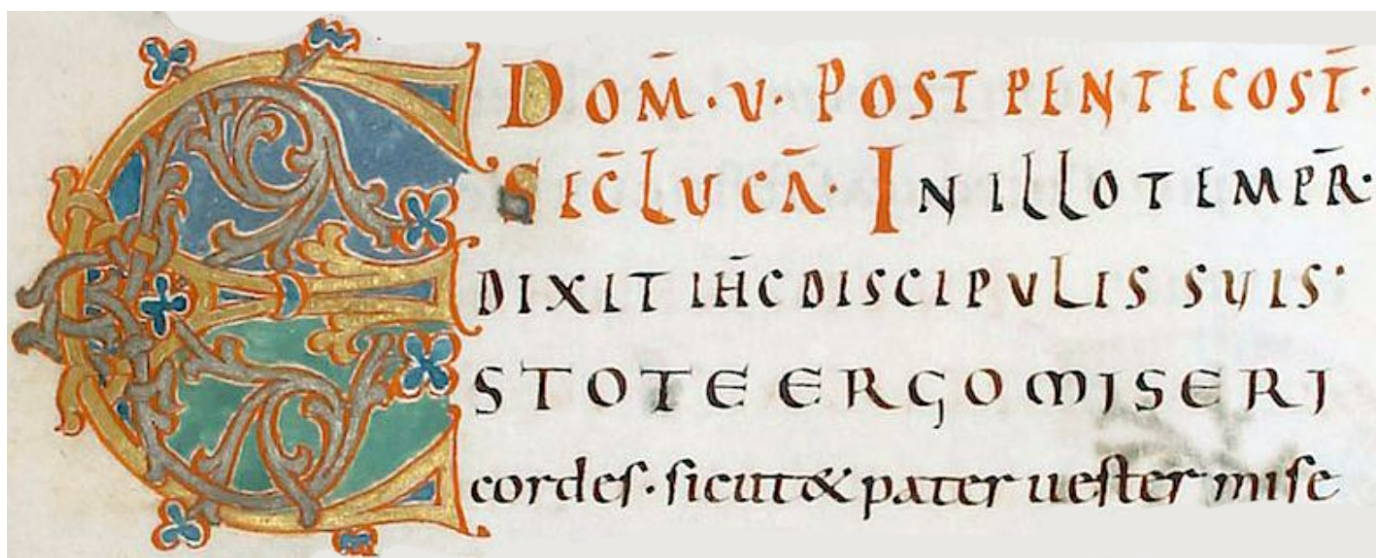 DOM̄·V·POST PENTECOST̄·
SEC̄ LUCĀ· IN ILLO TEMPR̄·
DIXIT IH̄C DISCIPULIS SUIS·
ESTOTE ERGO MISERI
cordeſ·ſicut & pater ueſter miſe